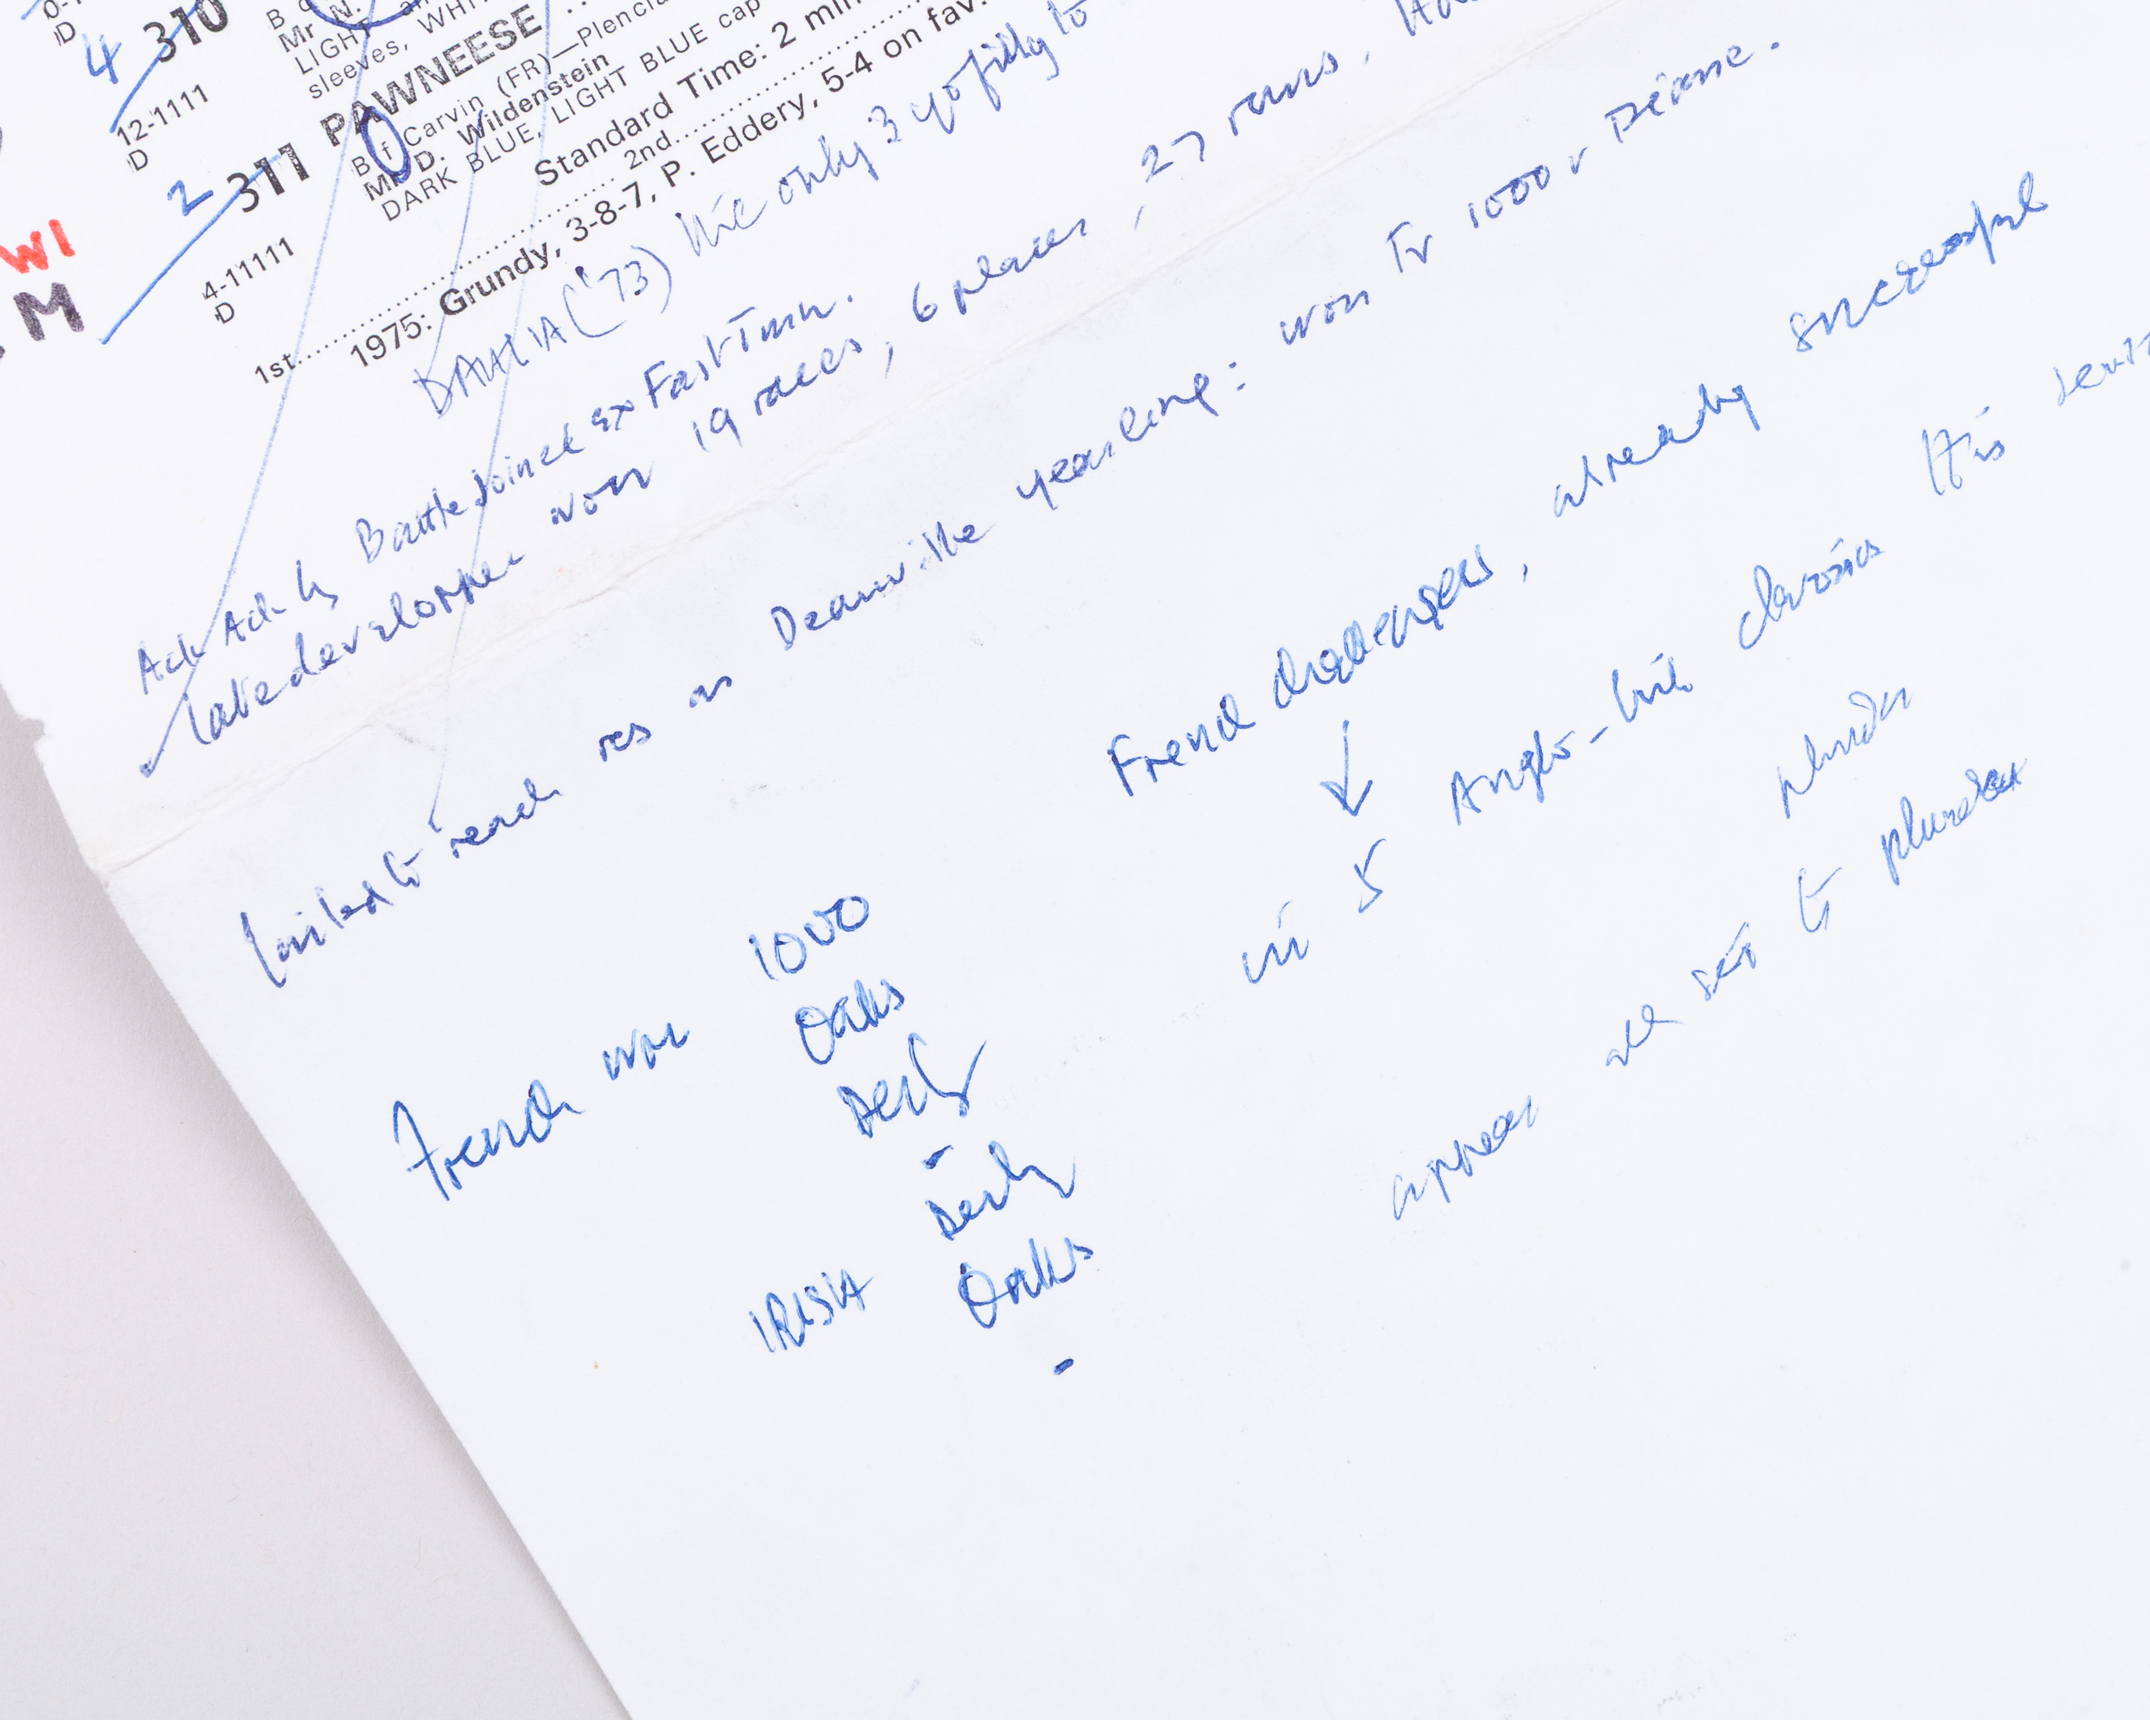 4 310
12-1111
D
Mr N.
LIGHT
sleeves, WHI
2 311 PAWNEESE
4-11111
D
B f Carvin (FR)—Plencia
Mr D. Wildenstein
DARK BLUE, LIGHT BLUE cap
Standard Time: 2 min
1st 2nd
1975: Grundy, 3-8-7, P. Eddery, 5-4 on fav.
WI
M
DAHLIA ('73) the only 3 yo filly to
Ack Ack by Battle Joined ex Fast Turn.
late developer won 19 races, 6 places, 27 runs,
failed to reach res as Deauville yearling: won Fr 1000 & Diane.
French challengers, already successful
↓
in 5 Anglo-Irish classics this
plunder
appear all set to plunder
French won 1000
Oaks
Derby
-
IRISH Derby
Oaks
-